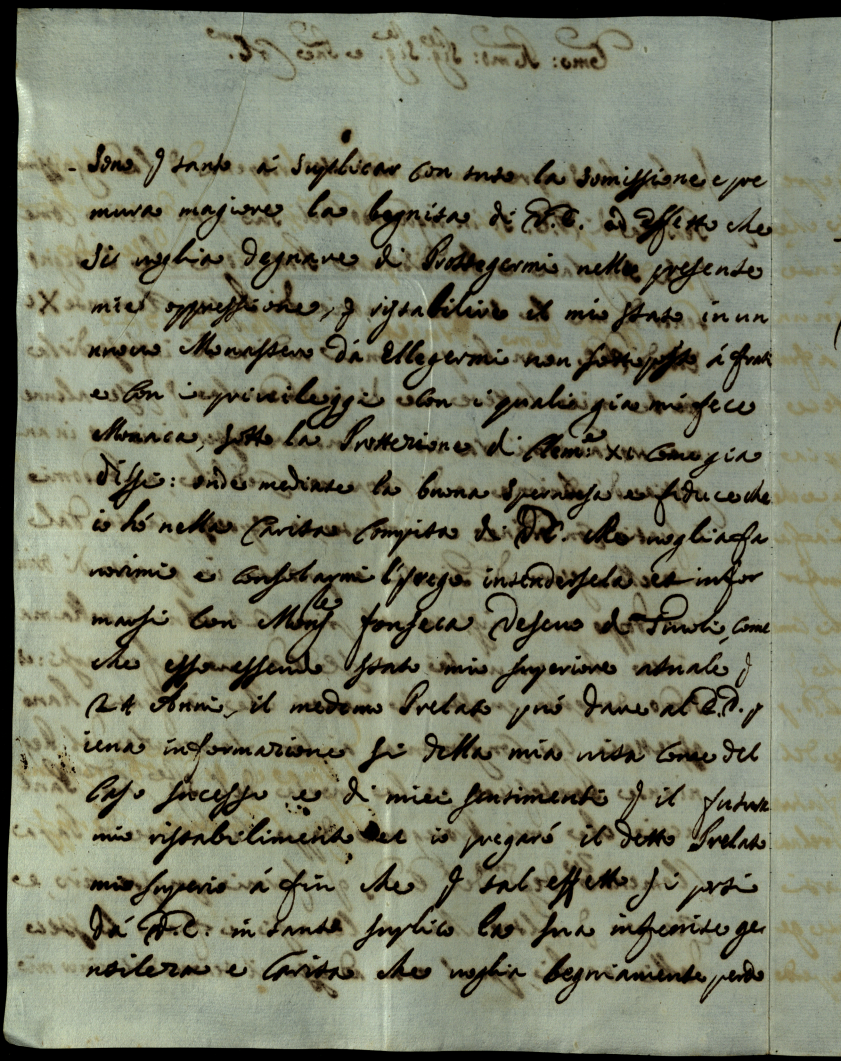 Sono p tanto á suplicar con tuto la somissione e pre
mura magiore la begnita di V.E. ad effetto che
Sis voglia degnare di Prottegermi nella presente
mia oppressione, p ristabilire il mio stato in un
nuovo Monastero dá Ellegermi non sottoposto á frati
e con i privileggi e con i quali giá mi fece
Monaca, sotto la Prottezione di Clem.e XI come gia
dissi: onde mediate la buona speransa e fiducia che
io hó nella Carita compita di V.E. che voglia fa
vorirmi e consolarmi l'prego intendersela et infor
marsi con Mons.re Fonseca Vescuo di Tivoli, come
che esso essendo stato mio superiore atuale p
24 Anni, il medemo Prelato pué dare al V.E. p
iena informazione si della mia vita come del
Caso sucesso e di miei sentimenti p il futuro
mio ristabilimento et io pregaró il detto Prelato
mio superio á fin che p tal effetto si porti
dá V.E. in tanto suplico la sua infenita ge
ntileza e Carita che voglia begniamente perdo